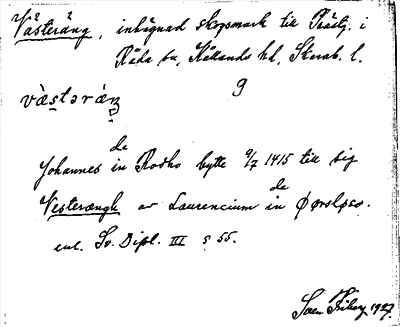 Västeräng, inhägnad skogsmark till Prästg. i
Råda sn, Kållands hd, Skarab. l.
9
västəräŋ
de
Johannes in Rodho bytte 9/7 1415 till sig
de
Vesterængh av Laurencium in Ørslösa.
enl. Sv. Dipl. III s 55.
Sven Friberg 1927.